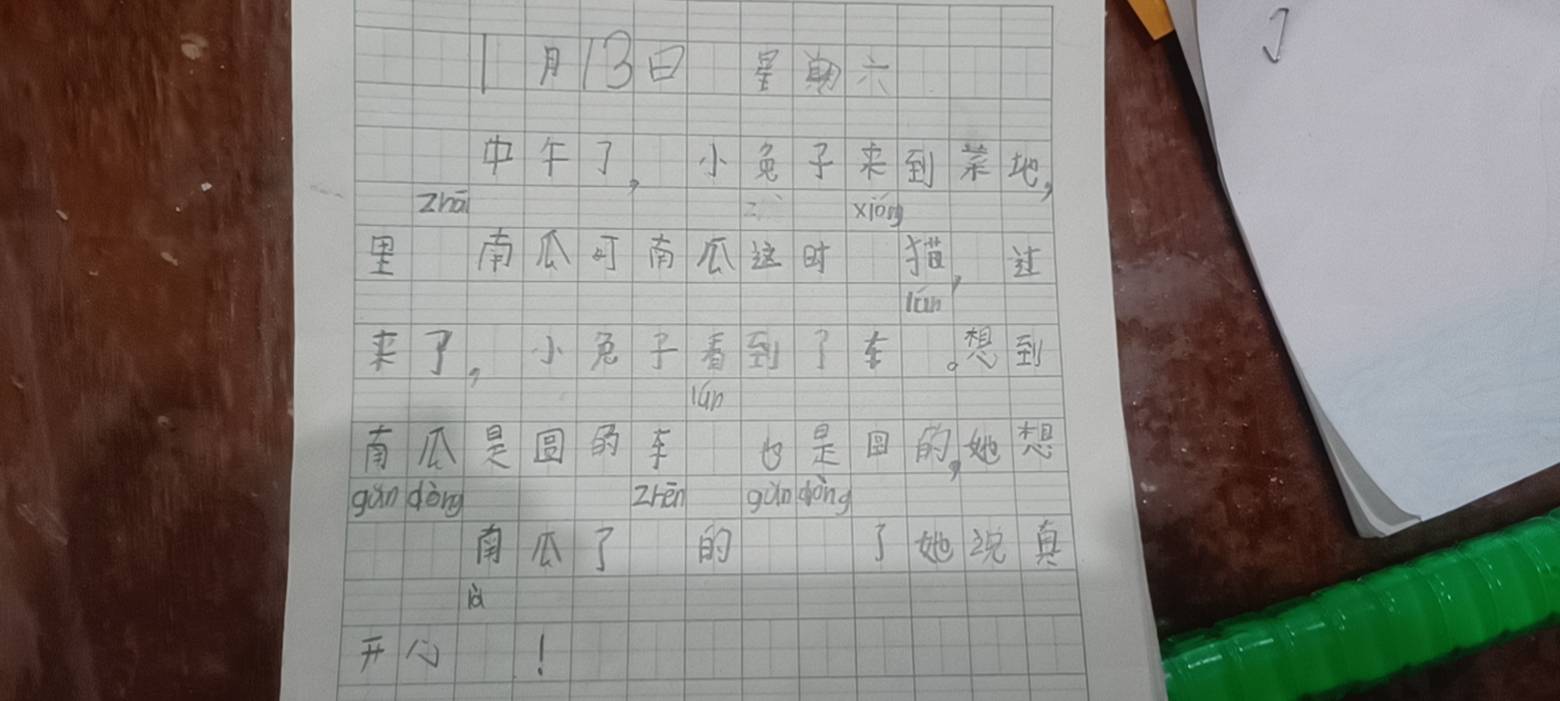 1月13日 星期六
中午了，小兔子来到菜地，
zhāi xióng
里 南瓜可南瓜这时 猫，过
lún
来了，小兔子看到了车 。想到
lún
南瓜是圆的车 也是圆的，她想
gǔn dòng zhēn gǔn dòng
南瓜了 的 了她说真
là
开心 ！